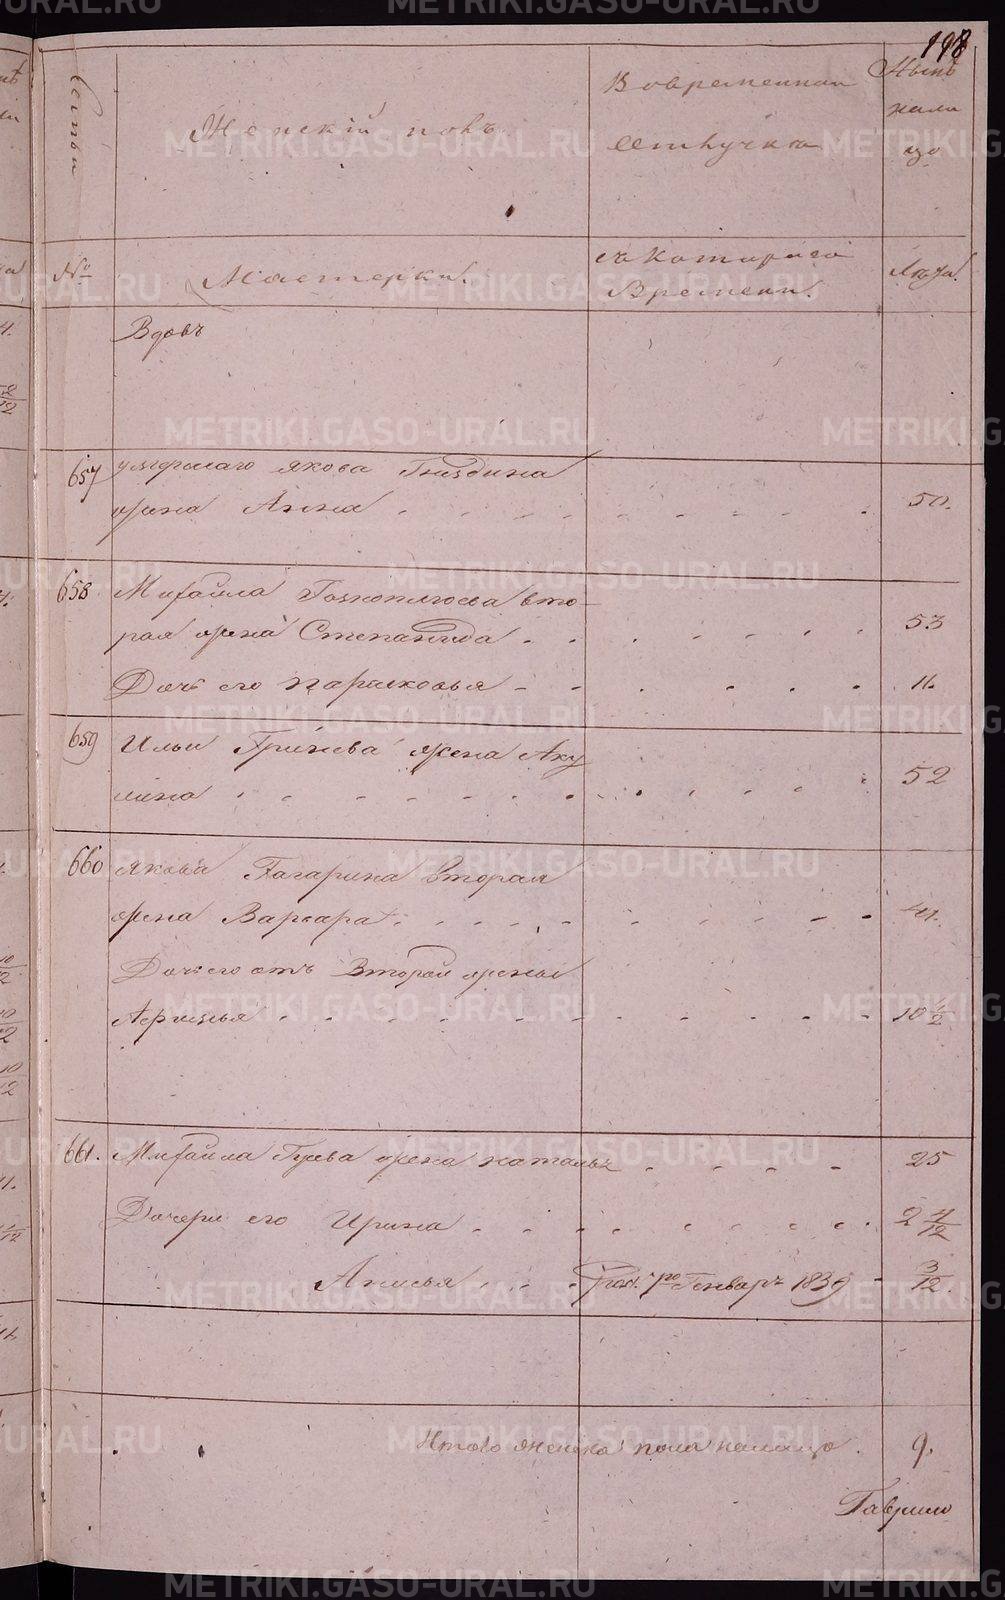 198
Семьи
Женскій полъ
Во временной
отлучкѣ
Нынѣ
нали
цо
№
Мастерки.
съ котораго
Времени.
Лѣта.
Вдовъ
657 умершаго Якова Гнездина
жена Анна 50.
658 Михайла вто-
рая жена Степанида 53
Дочь его парасковья 11.
659 Ильи Гринева жена Аку
лина 52
660 Якова Гагарина вторая
жена Варвара 41.
Дочь его отъ Второй жены
Афимья 10 1/2
661. Михайла Гуева жена наталья 25
Дочери его Ирина
Анисья 7го Генваря 1839 3/12
Итого женска пола налицо. 9.
Гаврило
METRIKI.GASO-URAL.RU